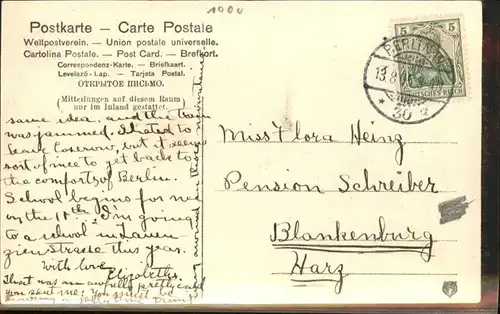 1000
Postkarte – Carte Postale
Weltpostverein. – Union postale universelle.
Cartolina Postale. – Post Card. – Brefkort.
Correspondenz-Karte. – Briefkaart.
Levelező-Lap. – Tarjeta Postal.
ОТКРЫТОЕ ПИСЬМО.
(Mitteilungen auf diesem Raum
nur im Inland gestattet.)
same idea. and the train
was jammed. I hated to
leave Coserow, but it seems
sort of nice to get back to
the comforts of Berlin.
School begins for me
on the 11th. I'm going
to a school in Lauen
zien Strasse this year.
With love
Elizabeth.
That was an awfully pretty card
you sent me. You must be
having a jolly time.
5 5
BERLIN
13.8.
DEUTSCHES REICH
* 30 a
Miss Flora Heinz
Pension Schreiber
Blankenburg
Harz